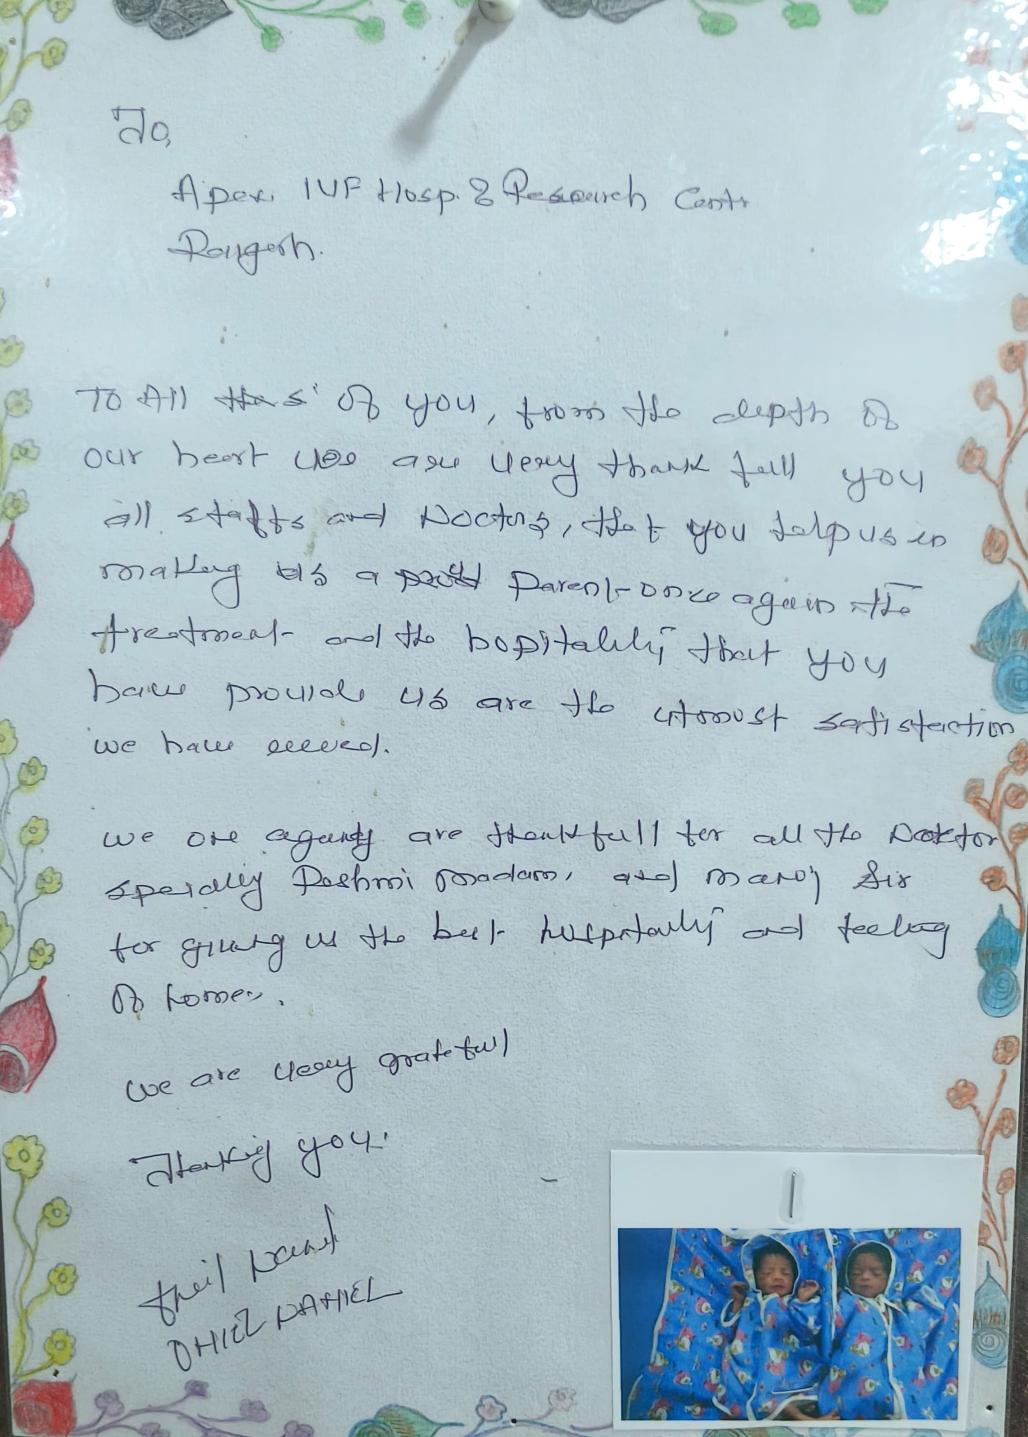 To,
Apex IVF Hosp. & Research Centr
Raygarh.
To All of you, from the depth of
our heart we are very thank full you
all staffs and Doctors, that you help us in
making us a parent once again the
treatment and the hospitality that you
have provide us are the utmost satisfaction
we have
We once are thankfull for all the Docktor
specially Rashmi madam, and manoj Sir
for giving us the best hospitality and feeling
of home.
We are very grateful
Thanking you.
DANIEL